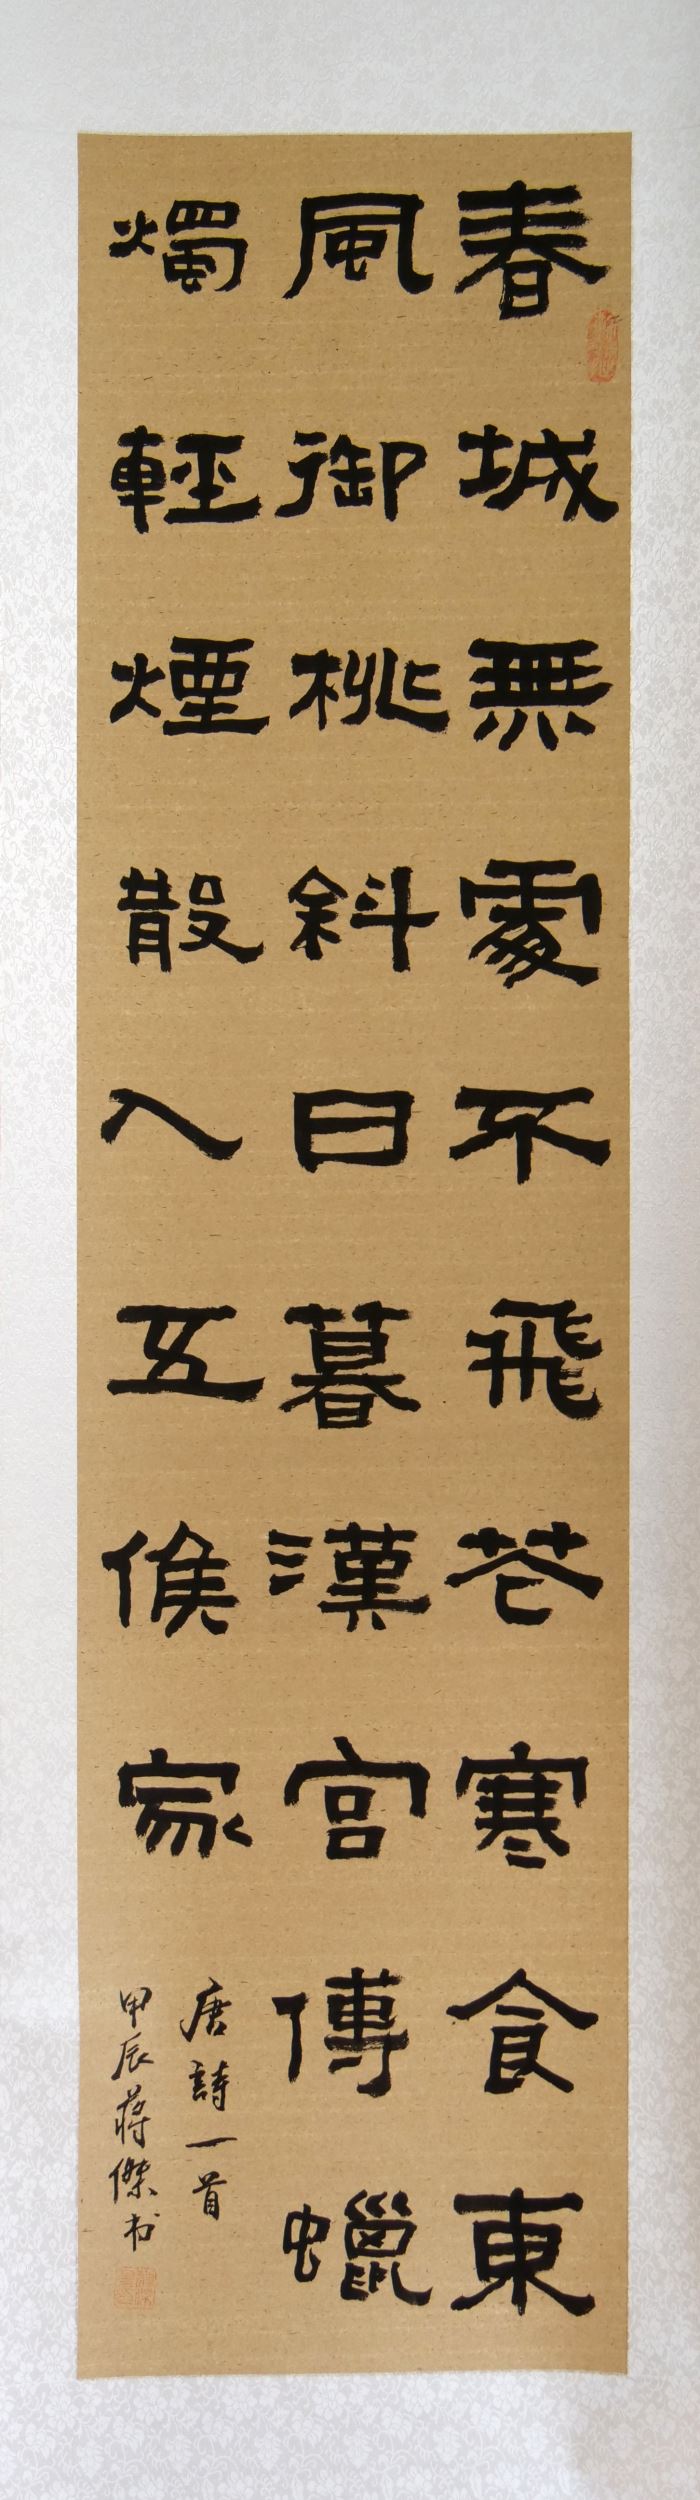 春城無處不飛花寒食東
風御柳斜日暮漢宮傳蠟
燭輕煙散入五侯家
唐詩一首
甲辰蔣傑书